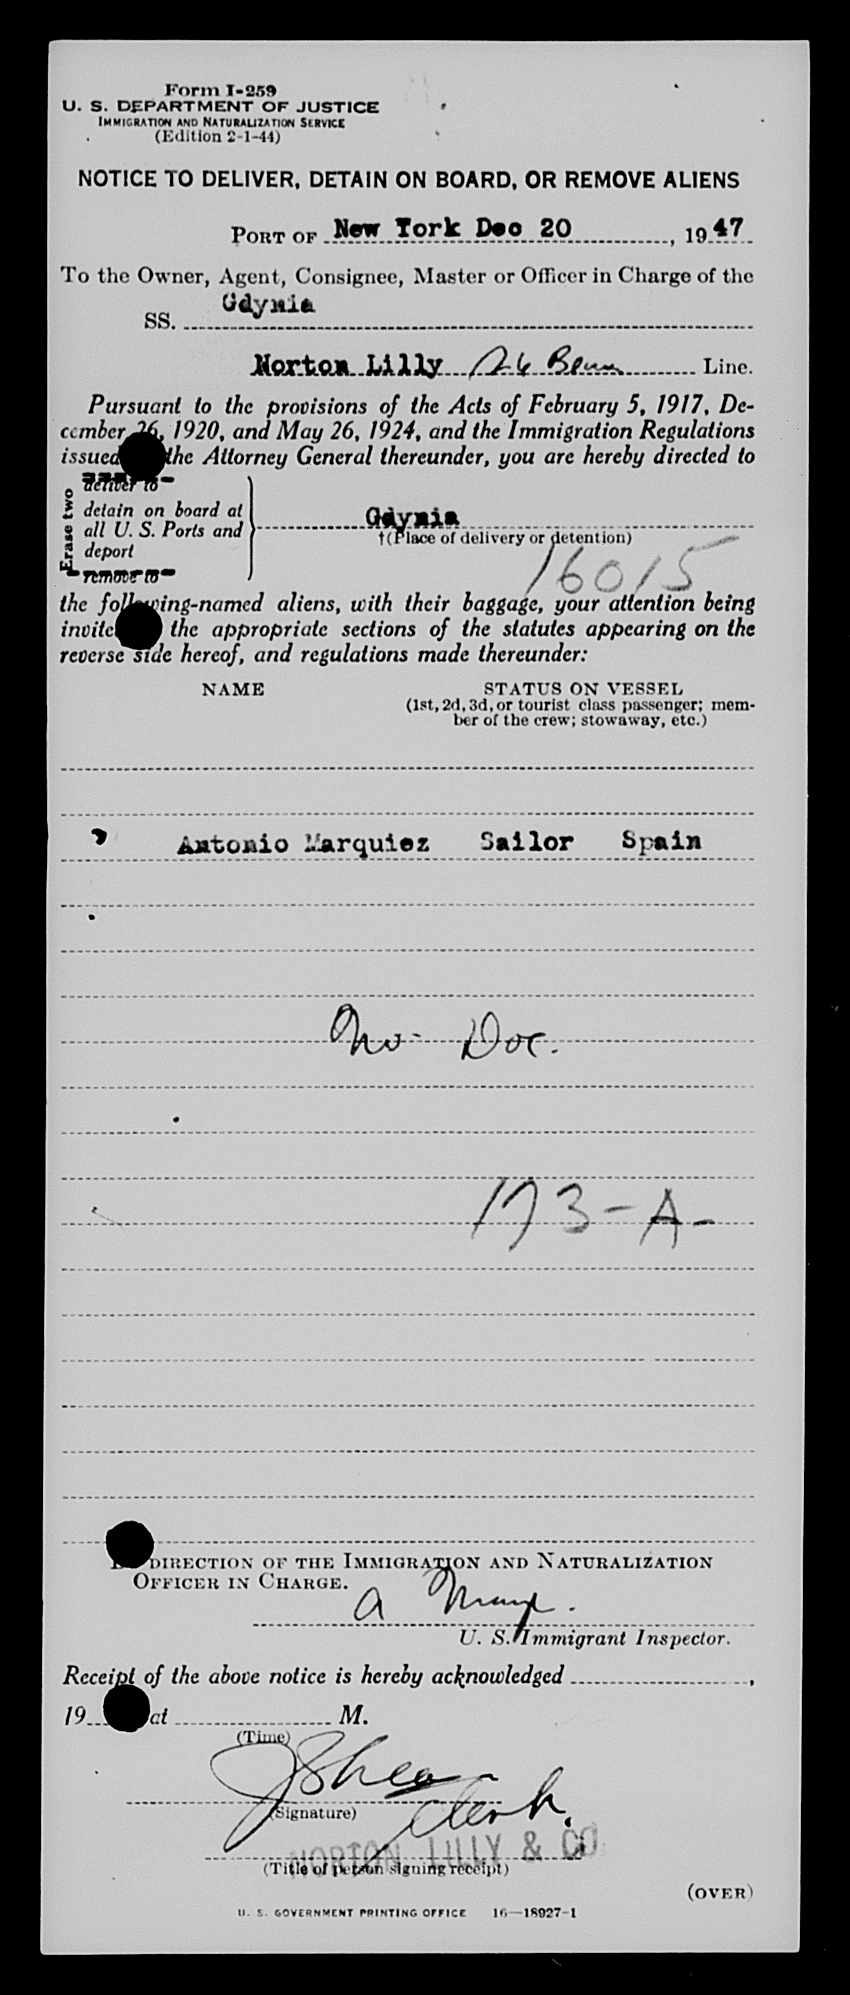 Form I-259
U. S. DEPARTMENT OF JUSTICE
IMMIGRATION AND NATURALIZATION SERVICE
(Edition 2-1-44)
NOTICE TO DELIVER, DETAIN ON BOARD, OR REMOVE ALIENS
PORT OF New York Dec 20, 1947
To the Owner, Agent, Consignee, Master or Officer in Charge of the
SS. Gdynia
Norton Lilly 26 Line.
Pursuant to the provisions of the Acts of February 5, 1917, De-
cember 26, 1920, and May 26, 1924, and the Immigration Regulations
issued the Attorney General thereunder, you are hereby directed to
Erase two
deliver to
detain on board at
all U. S. Ports and
deport
remove to
Gdynia
†(Place of delivery or detention)
16015
the following-named aliens, with their baggage, your attention being
invited the appropriate sections of the statutes appearing on the
reverse side hereof, and regulations made thereunder:
NAME STATUS ON VESSEL
(1st, 2d, 3d, or tourist class passenger; mem-
ber of the crew; stowaway, etc.)
Antonio Marquiez Sailor Spain
No Doc.
173-A-
DIRECTION OF THE IMMIGRATION AND NATURALIZATION
OFFICER IN CHARGE.
U. S. Immigrant Inspector.
Receipt of the above notice is hereby acknowledged ,
19 at M.
(Time)
J Shea
(Signature)
Clerk.
NORTON LILLY & CO
(Title of person signing receipt)
(OVER)
U. S. GOVERNMENT PRINTING OFFICE 16—18927-1